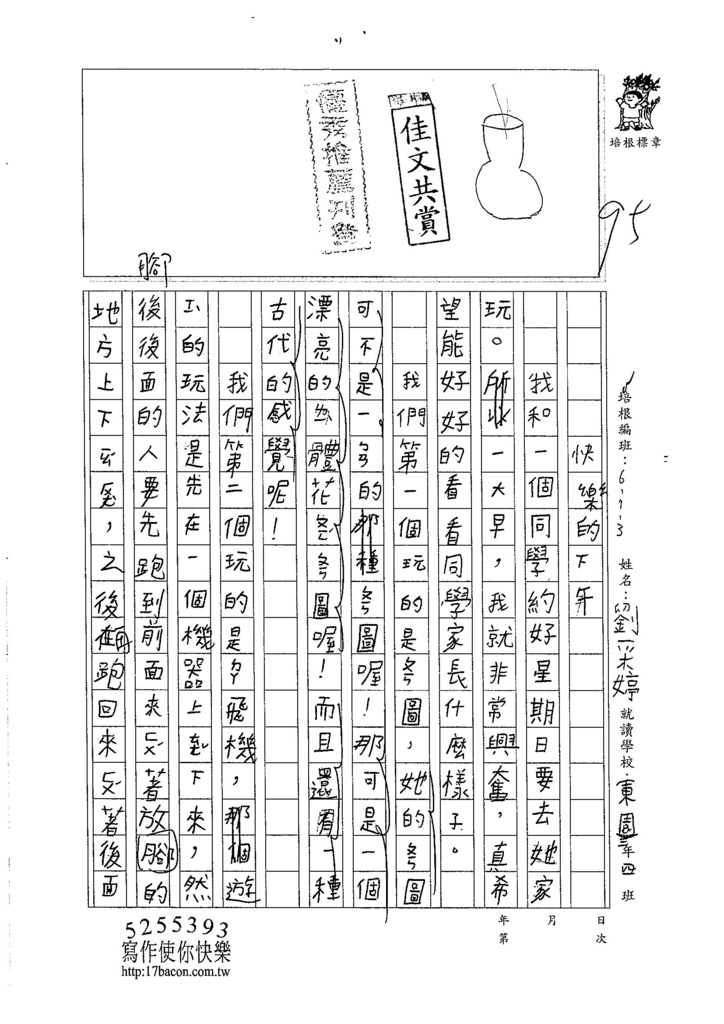 培根標章
優秀推薦刊登
佳文共賞
95
腳
培根編班：6-1-3 姓名：劉采婷 就讀學校：東園三年四班
快樂的下午
我和一個同學約好星期日要去她家
玩。所以一大早，我就非常興奮，真希
望能好好的看看同學家長什麼樣子。
我們第一個玩的是ㄆ圖，她的ㄆ圖
可不是一ㄅ的那種ㄆ圖喔！那可是一個
漂亮的立體花ㄆ圖喔！而且還有一種
古代的感覺呢！
我們第二個玩的是ㄕ飛機，那個遊
ㄒㄧ的玩法是先在一個機器上走下來，然
後後面的人要先跑到前面來ㄞ著放腳的
地方上下，之後在跑回來ㄞ著後面
年 月 日
第 次
5255393
寫作使你快樂
http:17bacon.com.tw